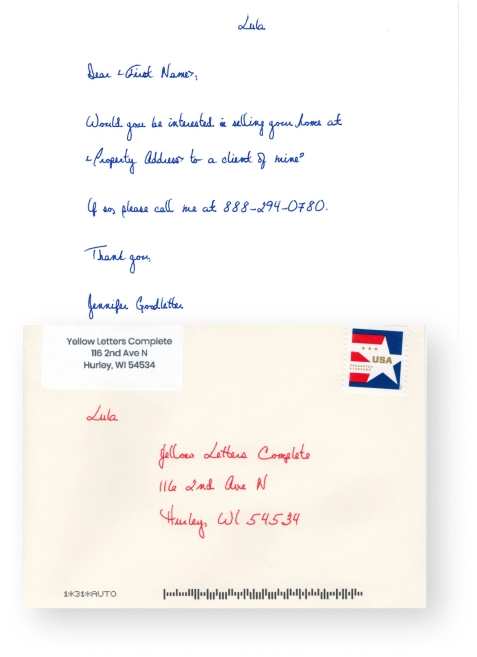 Lula
Dear <First Name>,
Would you be interested in selling your home at
<Property Address> to a client of mine?
If so, please call me at 888-294-0780.
Thank you,
Jennifer Goodletter
Yellow Letters Complete
116 2nd Ave N
Hurley, WI 54534
USA
PRESORTED
STANDARD
Lula
Yellow Letters Complete
116 2nd Ave N
Hurley, WI 54534
1*31*AUTO